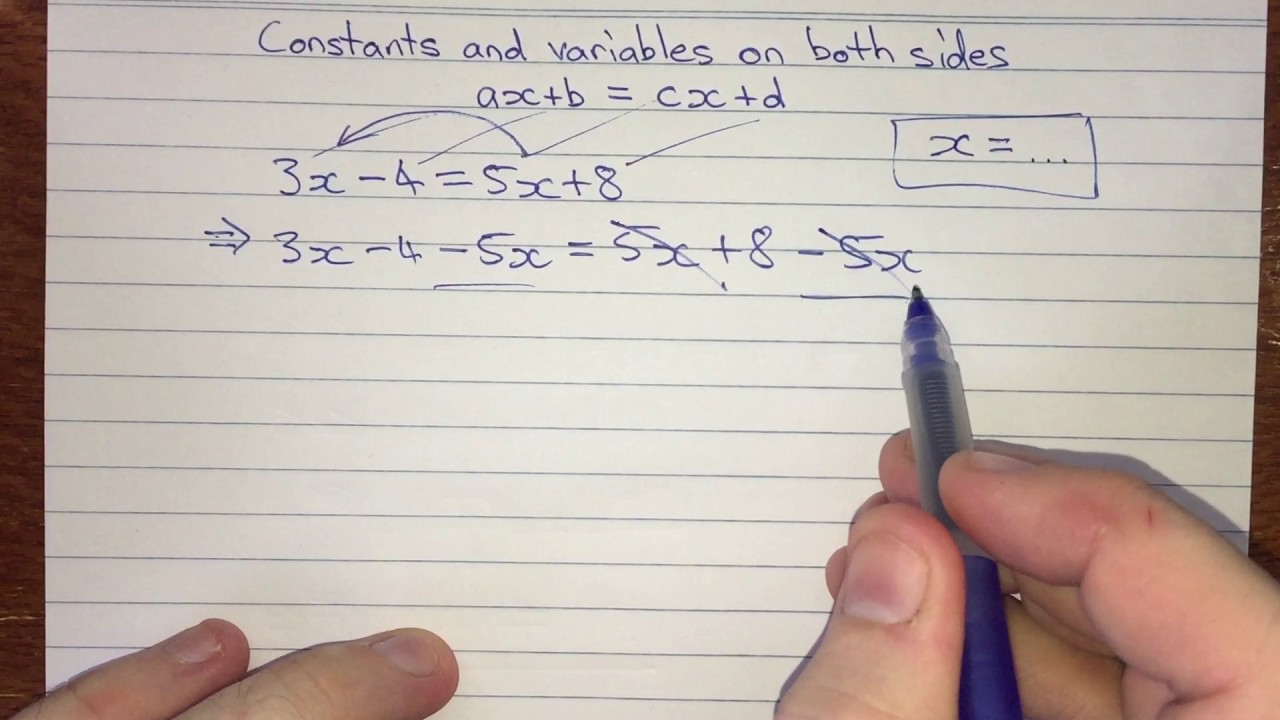 Constants and variables on both sides
ax+b = cx+d
x = ...
3x-4=5x+8
⇒ 3x-4-5x = 5x+8-5x